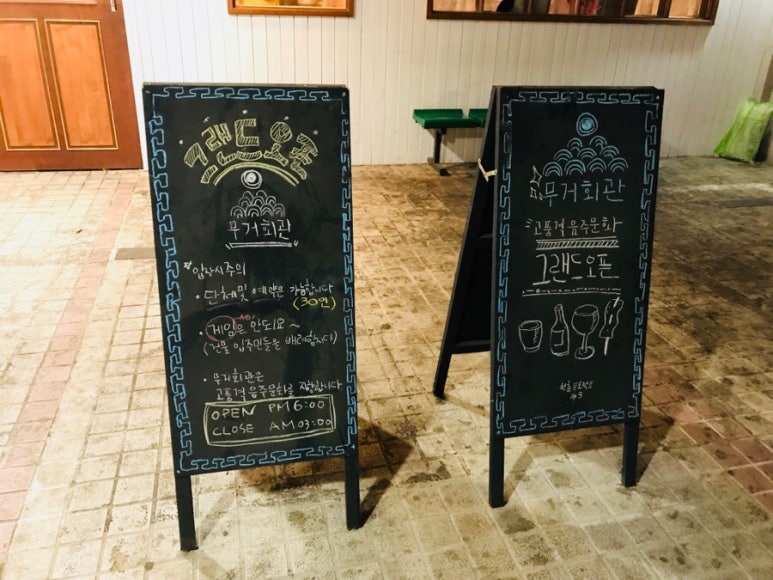 그랜드 오픈
무거회관
*입장시 주의
• 단체및 예약은 가능합니다
(30인)
• 게임은 안되요~
(건물 입주민들을 배려합니다)
• 무거회관은
고품격 음주문화를 지향합니다
OPEN PM 6:00
CLOSE AM 03:00
무거회관
고품격 음주문화
그랜드 오픈